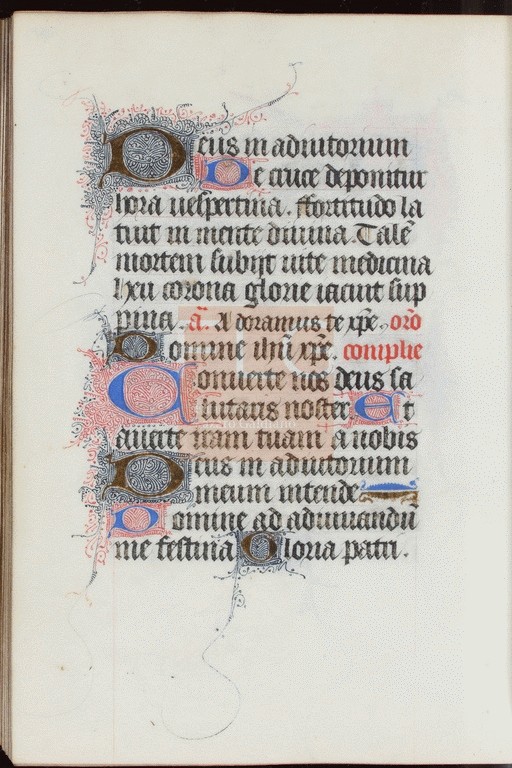 Deus in adiutorium
De cruce deponitur
hora uespertina. ffortitudo la
tuit in mente diuina. Talē
mortem subijt uite medicina
hxu corona glorie iacuit sup
pina. a͞. Adoramus te xp̄e. or̄o
Domine ihū xp̄e. complie
Conuerte nos deus sa
lutaris noster. Et
auerte iram tuam a nobis
Deus in adiutorium
meum intende
Domine ad adiuuandū
me festina Gloria patri.